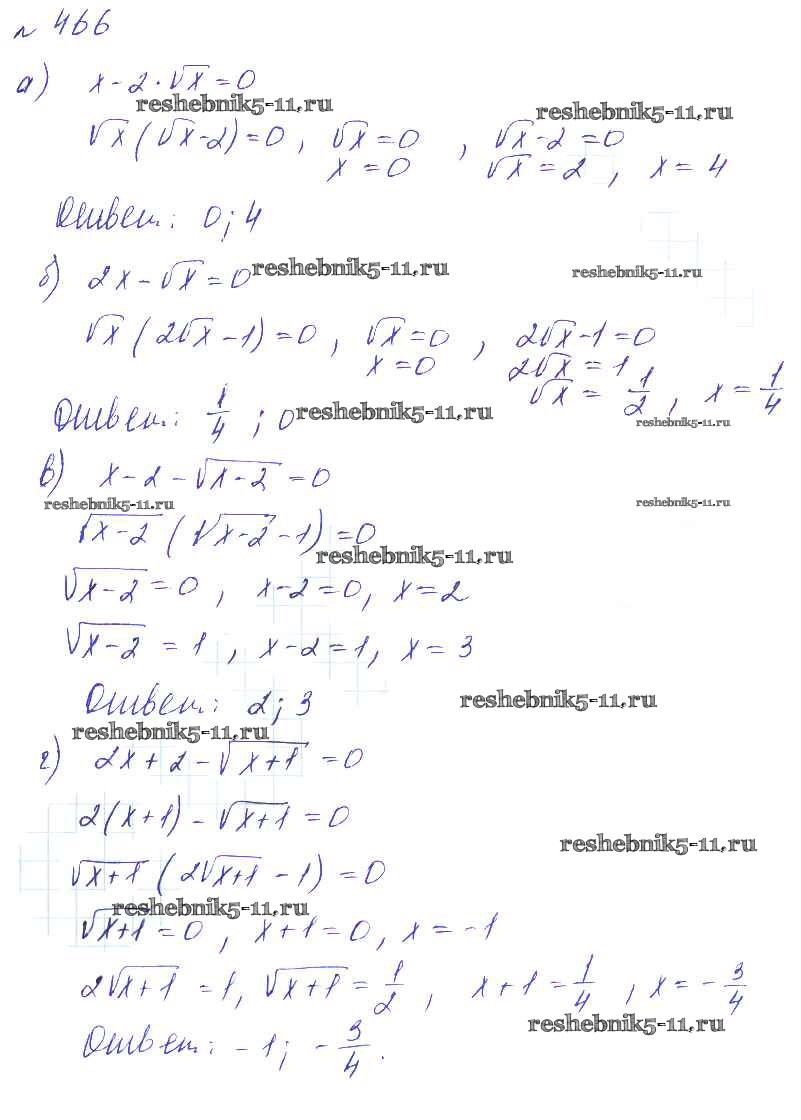 № 466
а) x - 2 · √x = 0
reshebnik5-11.ru
reshebnik5-11.ru
√x (√x - 2) = 0 , √x = 0 , √x - 2 = 0
x = 0 √x = 2 , x = 4
Ответ: 0; 4
б) 2x - √x = 0 reshebnik5-11.ru
reshebnik5-11.ru
√x (2√x - 1) = 0 , √x = 0 , 2√x - 1 = 0
x = 0 2√x = 1
√x = 1/2 , x = 1/4
Ответ: 1/4 ; 0 reshebnik5-11.ru
reshebnik5-11.ru
в) x - 2 - √(x - 2) = 0
reshebnik5-11.ru
reshebnik5-11.ru
√(x - 2) (√(x - 2) - 1) = 0
reshebnik5-11.ru
√(x - 2) = 0 , x - 2 = 0, x = 2
√(x - 2) = 1 , x - 2 = 1, x = 3
Ответ: 2; 3
reshebnik5-11.ru
reshebnik5-11.ru
г) 2x + 2 - √(x + 1) = 0
2(x + 1) - √(x + 1) = 0
reshebnik5-11.ru
√(x + 1) (2√(x + 1) - 1) = 0
reshebnik5-11.ru
√(x + 1) = 0 , x + 1 = 0, x = -1
2√(x + 1) = 1, √(x + 1) = 1/2 , x + 1 = 1/4 , x = - 3/4
reshebnik5-11.ru
Ответ: -1; - 3/4.